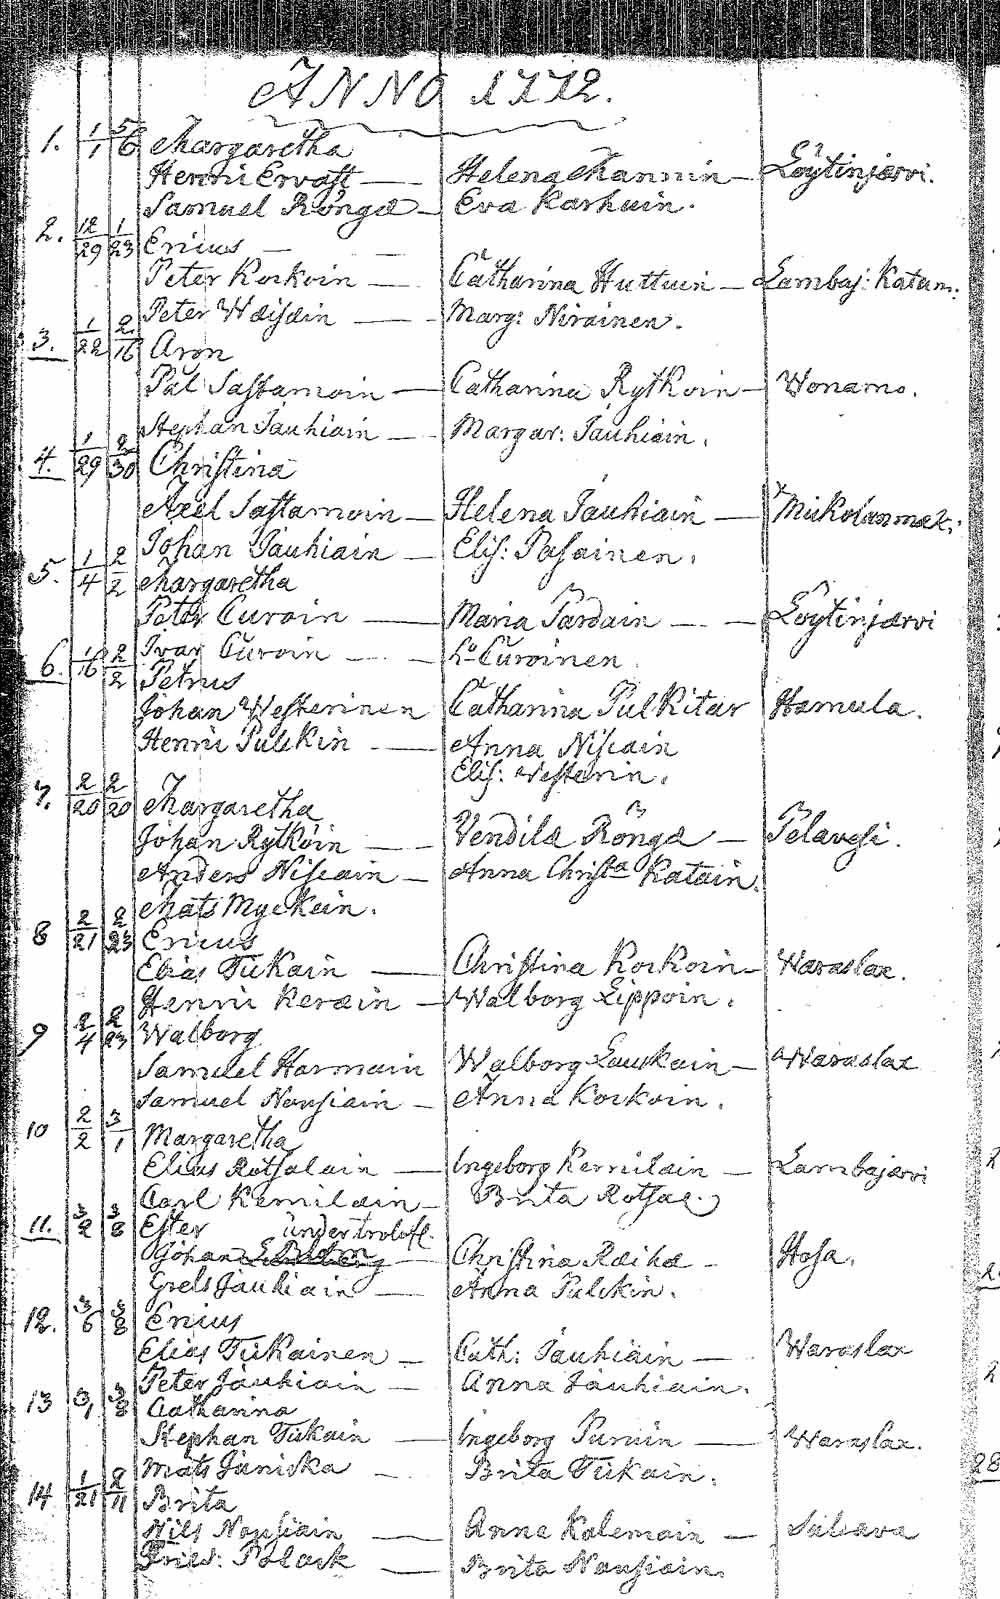 ANNO 1772.
1. 1/1 5/6 Margaretha
Henric Ervast — Helena Mannin — Löytinjærvi.
Samuel Röngæ — Eva Karhuin.
2. 12/29 1/23 Ericus —
Peter Korkoin — Catharina Huttuin — Lambaj: Katam:
Peter Wæisæin — Marg: Nirainen.
3. 1/22 2/16 Aron
Pål Sastamoin — Catharina Rytkoin — Wonamo.
Stephan Jauhiain — Margar: Jauhiain.
4. 1/29 2/30 Christina
Axel Sastamoin — Helena Jauhiain — Mickolanmæk:
Johan Jauhiain — Elis: Pasainen.
5. 1/4 2/2 Margaretha
Peter Curoin — Maria Pardain — Löytinjærvi
6. 1/16 2/2 Ivar Curoin — Curoinen.
Petrus
Johan Westerinen Catharina Pulkitar Hamula.
Henric Pulckin — Anna Nisiain
Elis: Westerin.
7. 2/20 2/20 Margaretha
Johan Rytköin — Vendila Röngæ — Pelavesi.
Anders Nisiain — Anna Christa Katain.
Mats Myckæin.
8 2/21 2/23 Ericus
Elias Tickain — Christina Korkoin — Waraslax.
Henric Keræin — Walborg Lippoin.
9 2/4 2/23 Walborg
Samuel Harmain Walborg Lauckain — Waraslax
Samuel Nousiain — Anna Korkoin.
10 2/2 3/1 Margaretha
Elias Rotsalain — Ingeborg Kemilæin — Lambajærvi
Carl Kemilæin — Brita Rotsal.
11. 3/2 3/8 Ester under trolofl.
Johan — Christina Ræihæ — Hosa.
Grels Jauhiain — Anna Pulckin.
12. 3/6 3/8 Ericus
Elias Tickainen — Cath: Jauhiain — Waraslax
Peter Jauhiain — Anna Jauhiain.
13 3/1 3/8 Catharina
Stephan Tickain — Ingeborg Puruin — Waraslax.
Mats Janiska — Brita Tickain.
14 1/21 2/11 Brita
Nils Nousiain — Anna Kolemain — Salsava
Fried: Polack — Brita Nousiain.